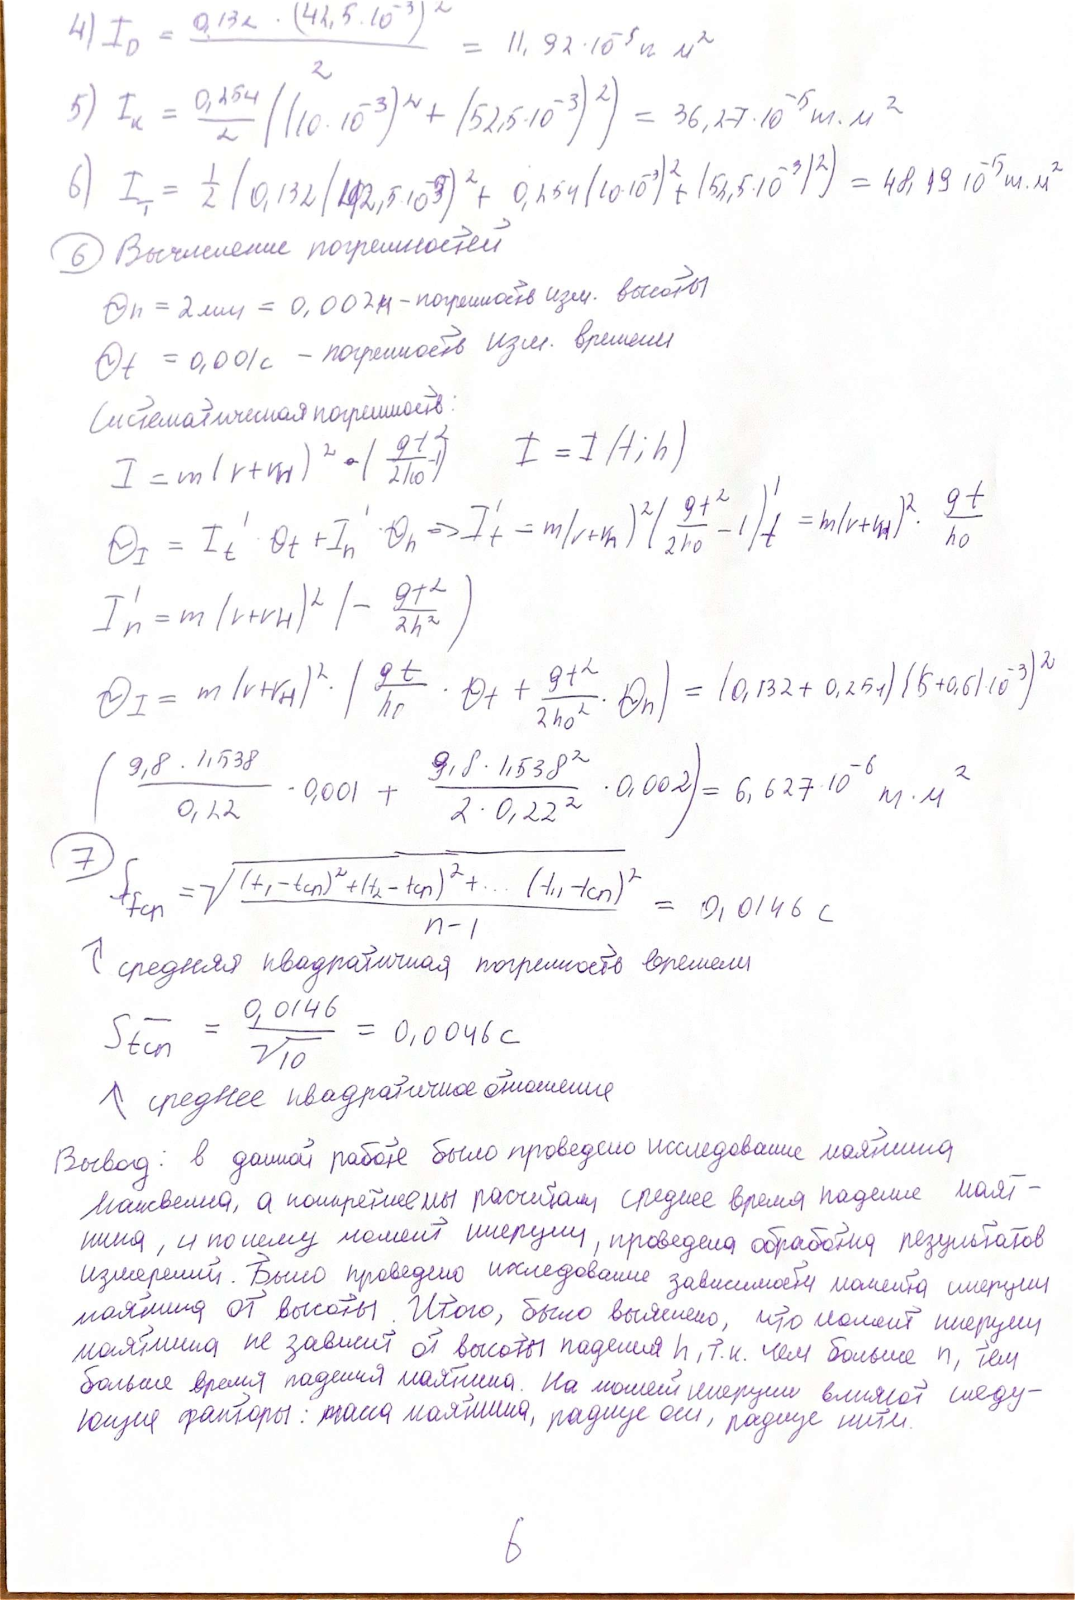 4) I_D = 0,132 · (42,5·10⁻³)² / 2 = 11,92·10⁻⁵ п м²
5) I_к = 0,254/2 ((10·10⁻³)² + (52,5·10⁻³)²) = 36,27·10⁻⁵ т·м²
6) I_т = 1/2 (0,132 (42,5·10⁻³)² + 0,254 (10·10⁻³)² + (52,5·10⁻³)²) = 48,19 10⁻⁵ т·м²
6 Вычисление погрешностей
Θh = 2мм = 0,002м – погрешность изм. высоты
Θt = 0,001с – погрешность изм. времени
Систематическая погрешность:
I = m(r+rн)² · (gt²/2h₀ -1) I = I(t;h)
Θ_I = I't · Θt + I'h · Θh => I't = m(r+rн)² (gt²/2h₀ - 1)'t = m(r+rн)² · gt/h₀
I'h = m(r+rн)² (- gt²/2h²)
Θ_I = m(r+rн)² · (gt/h₀ · Θt + gt²/2h₀² · Θh) = (0,132 + 0,254) (5+0,6)·10⁻³)²
(9,8 · 1,538 / 0,22 · 0,001 + 9,8 · 1,538² / 2 · 0,22² · 0,002) = 6,627·10⁻⁶ т·м²
7 S_tср = √((t₁-tср)² + (t₂-tср)² + ... (t₁₁-tср)² / n-1) = 0,0146 с
↑ средняя квадратичная погрешность времени
S_tср = 0,0146 / √10 = 0,0046с
↑ среднее квадратичное отношение
Вывод: в данной работе было проведено исследование маятника
Максвелла, а конкретнее мы расчитали среднее время падение маят-
ника, и по нему момент инерции, проведена обработка результатов
измерений. Было проведено исследование зависимости момента инерции
маятника от высоты. Итого, было выяснено, что момент инерции
маятника не зависит от высоты падения h, т.к. чем больше h, тем
больше время падения маятника. На момент инерции влияют следу-
ющие факторы: масса маятника, радиус оси, радиус нити.
6